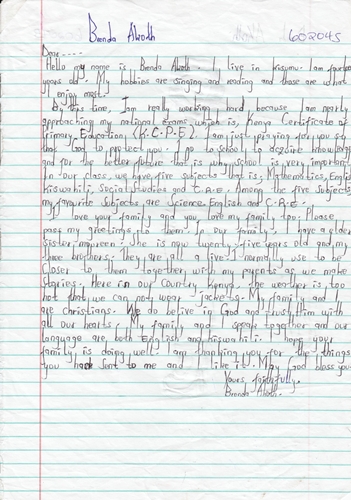 Brenda Akoth 602045
Dear ----
Hello my name is Brenda Akoth. I live in Kisumu. I am fourteen
years old. My hobbies are singing and reading and those are what
I enjoy most.
By this time, I am really working hard because I am nearly
approaching my national exams which is, Kenya Certificate of
Primary Education (K.C.P.E). I am just praying for you so
that God to protect you. I go to school to acquire knowledge
and for the better future that is why school is very important
In our class, we have five subjects that is; Mathematics, English
Kiswahili, Social studies and C.R.E. Among the five subjects,
my favourite subjects are Science English and C.R.E.
I love your family and you love my family too. Please
pass my greetings to them. In our family, I have a elder
sister maureen. She is now twenty five years old and my
three brothers. They are all a live. I normally use to be
closer to them together with my parents as we make
stories. Here in our Country Kenya, the weather is too
hot that we can not wear jackets. My family and I
are christians. We do believe in God and trust Him with
all our hearts. My family and I speak together and our
language are both English and Kiswahili. I hope your
family is doing well. I am thanking you for the things
you had sent to me and I like it. May God bless you.
Yours faithfully.
Brenda Akoth.